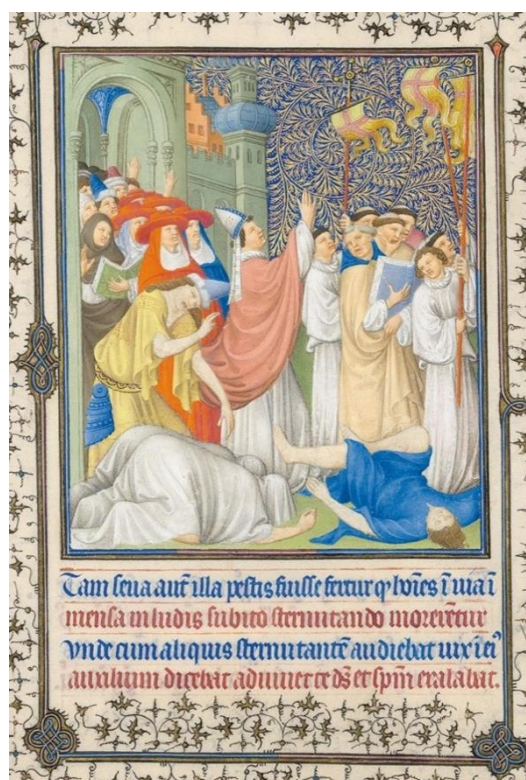 Tam seua aut illa pestis fuisse fertur q hoies i uia i
mensa in ludis subito sternutando morerētur
Vnde cum aliquis sternutantē audiebat uix i ei⁹
auxilium dicebat adiuuet te ds et spm exalabat.